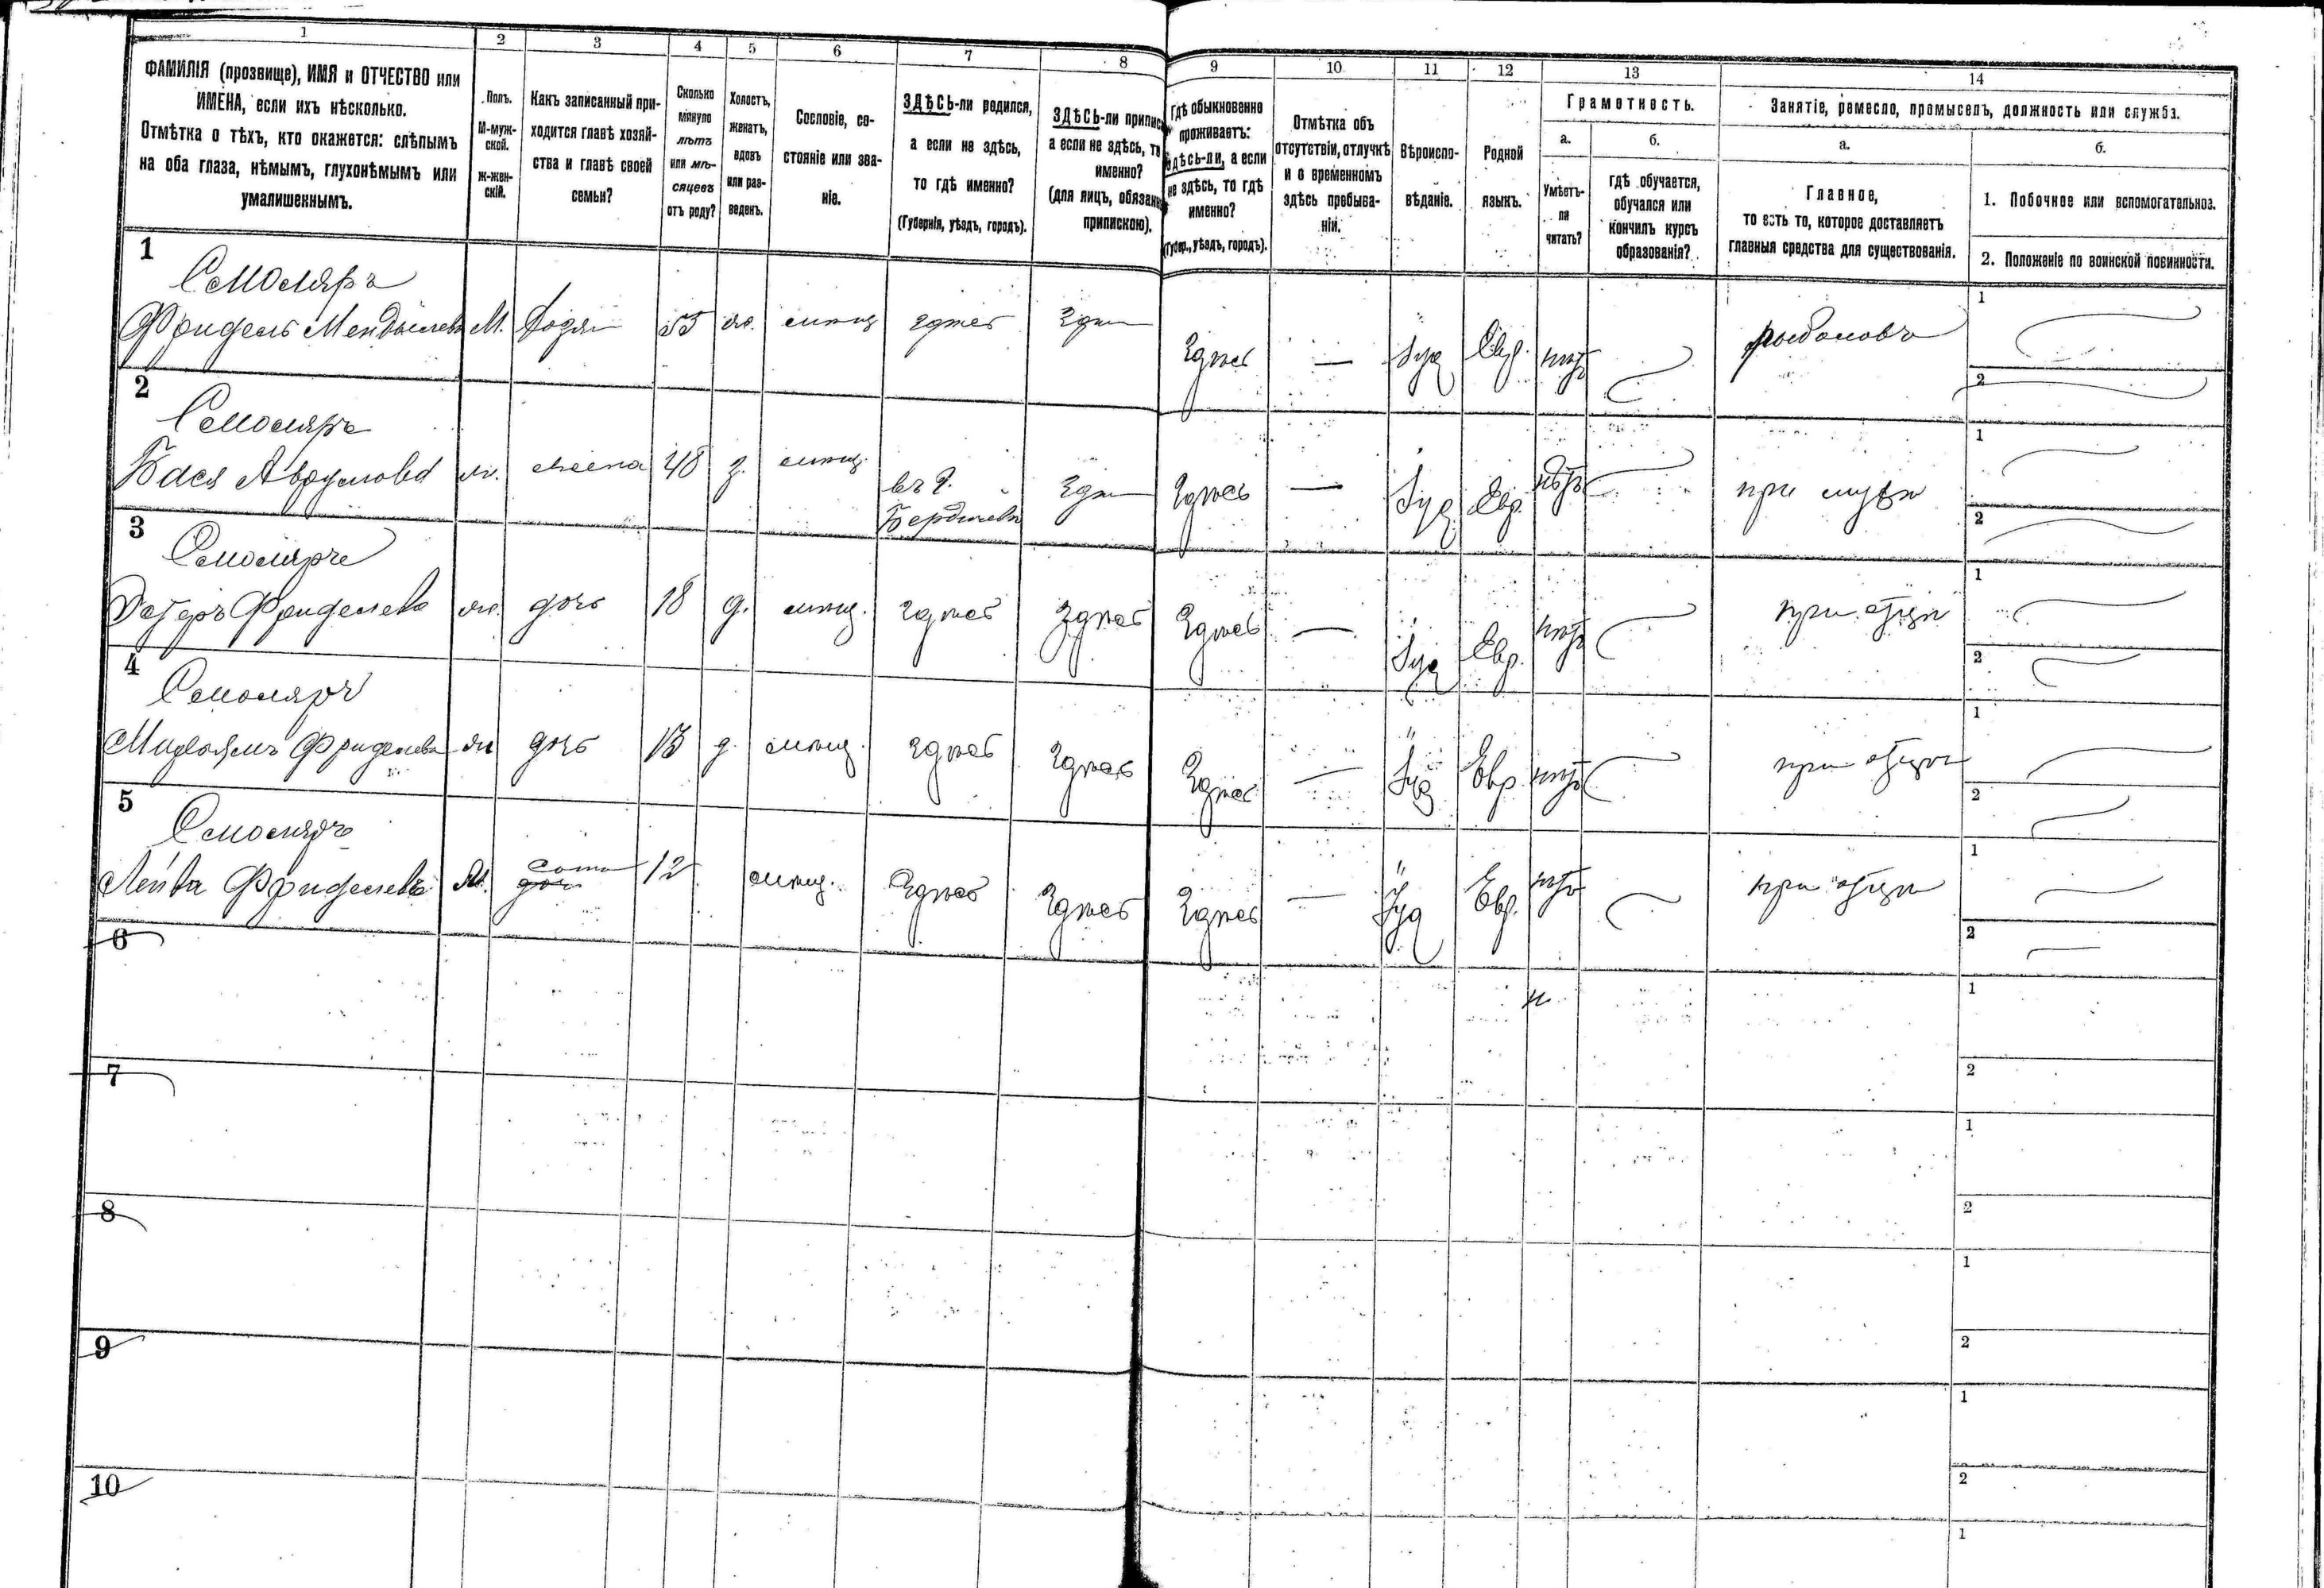 1 2 3 4 5 6 7 8 9 10 11 12 13 14
ФАМИЛІЯ (прозвище), ИМЯ и ОТЧЕСТВО или
ИМЕНА, если ихъ нѣсколько.
Отмѣтка о тѣхъ, кто окажется: слѣпымъ
на оба глаза, нѣмымъ, глухонѣмымъ или
умалишеннымъ.
Полъ.
М-муж-
ской.
Ж-жен-
скій.
Какъ записанный при-
ходится главѣ хозяй-
ства и главѣ своей
семьи?
Сколько
минуло
лѣтъ
или мѣ-
сяцевъ
отъ роду?
Холостъ,
женатъ,
вдовъ
или раз-
веденъ.
Сословіе, со-
стояніе или зва-
ніе.
ЗДѢСЬ-ли родился,
а если не здѣсь,
то гдѣ именно?
(Губернія, уѣздъ, городъ).
ЗДѢСЬ-ли припис
а если не здѣсь, то
именно?
(для лицъ, обязан
припискою).
Гдѣ обыкновенно
проживаетъ:
здѣсь-ли, а если
не здѣсь, то гдѣ
именно?
(Губер., уѣздъ, городъ).
Отмѣтка объ
отсутствіи, отлучкѣ
и о временномъ
здѣсь пребыва-
ніи.
Вѣроиспо-
вѣданіе.
Родной
языкъ.
Грамотность.
а.
Умѣетъ-
ли
читать?
б.
гдѣ обучается,
обучался или
кончилъ курсъ
образованія?
Занятіе, ремесло, промыселъ, должность или служба.
а.
Главное,
то есть то, которое доставляетъ
главныя средства для существованія.
б.
1. Побочное или вспомогательное.
2. Положеніе по воинской повинности.
1
Смоляръ
Фридель М. 55 здѣсь Здѣсь — Іуд Евр. нѣтъ рыболовъ
1
2
2
Смоляръ
Бася ж. жена 48 з. мѣщ. въ г. Здѣсь — Іуд Евр. нѣтъ при мужѣ
Бердичевѣ
1
2
3
Смоляръ
Фриделева ж. дочь 18 д. мѣщ. здѣсь здѣсь Здѣсь — Іуд Евр. нѣтъ при отцѣ
1
2
4
Смоляръ
Фриделева ж дочь д. мѣщ. здѣсь здѣсь Здѣсь — Іуд Евр. нѣтъ при отцѣ
1
2
5
Смоляръ
Лейба Фриделевъ М. сынъ 12 мѣщ. Здѣсь Здѣсь Здѣсь — Іуд Евр. нѣтъ при отцѣ
1
2
6
н
1
2
7
1
2
8
1
2
9
1
2
10
1